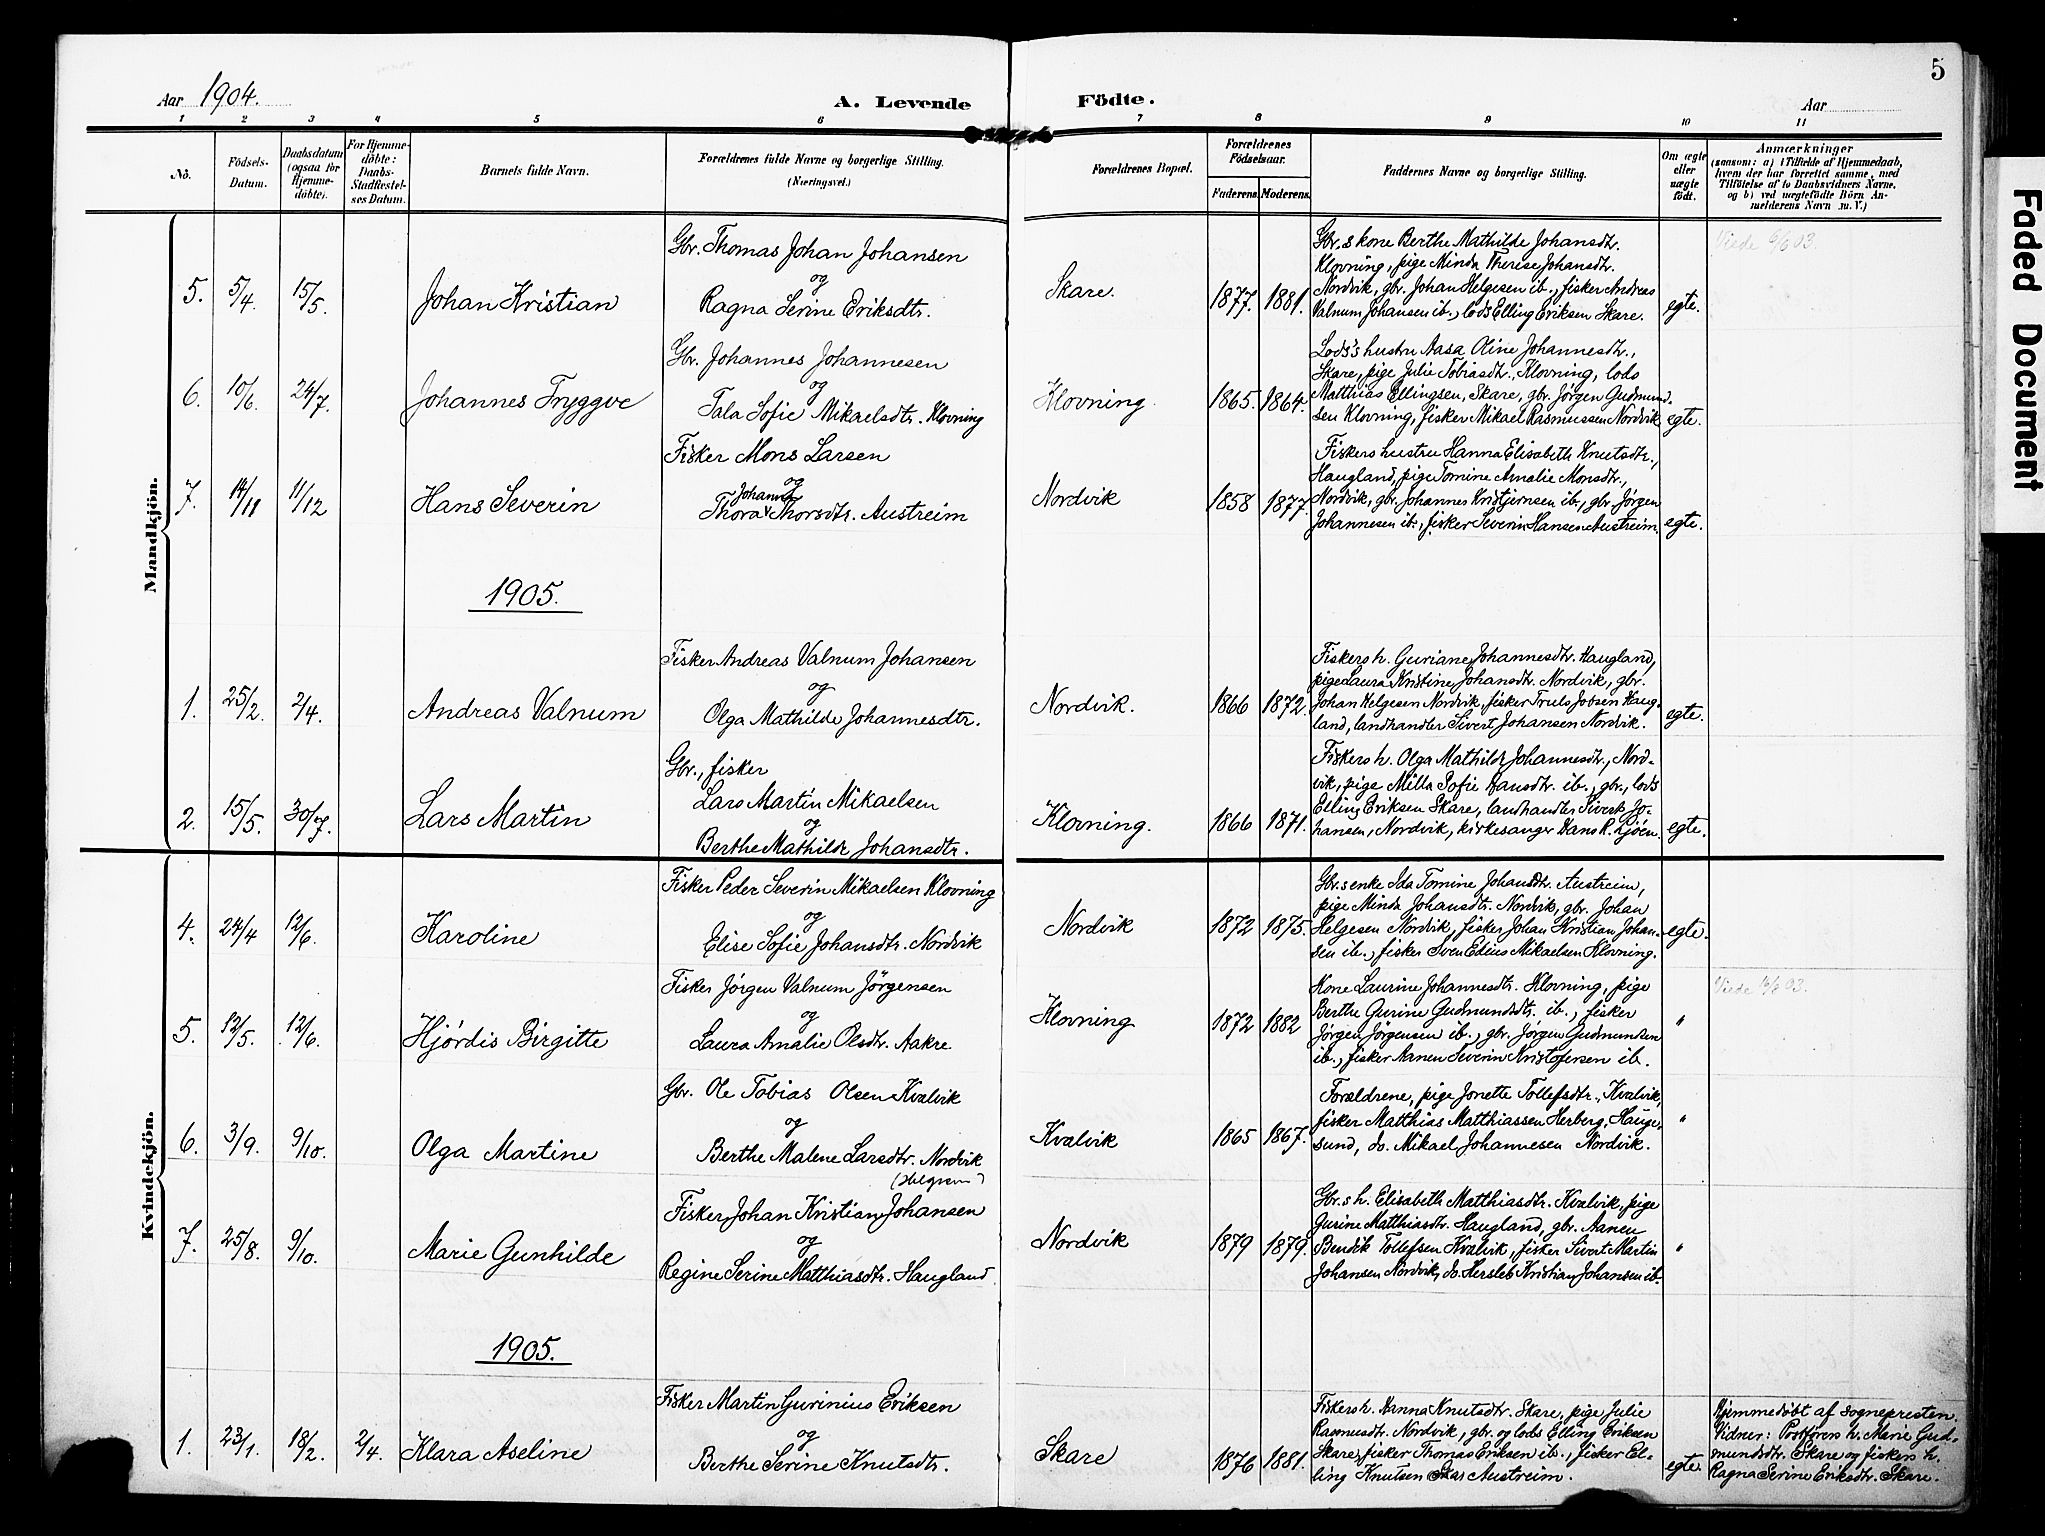 5
Aar 1904. A. Levende Födte. Aar
1 2 3 4 5 6 7 8 9 10 11
No.
Födsels-
Datum.
Daabsdatum
(ogsaa for
Hjemme-
döbte).
For Hjemme-
döbte:
Daabs-
Stadfæstel-
ses Datum.
Barnets fulde Navn.
Forældrenes fulde Navne og borgerlige Stilling.
(Næringsvei.)
Forældrenes Bopæl.
Forældrenes
Födselsaar.
Faderens. Moderens.
Faddernes Navne og borgerlige Stilling.
Om ægte
eller
uægte
födt.
Anmærkninger
(saasom: a) i Tilfælde af Hjemmedaab,
hvem der har forrettet samme, med
Tilföielse af to Daabsvidners Navne,
og b) ved uægtefödte Börn An-
melderens Navn m. V.)
Faded Document
Mandkjön.
5. 5/4. 15/5. Johan Kristian
Gbr. Thomas Johan Johansen
og
Ragna Serine Eriksdtr.
Skare. 1877. 1881.
Gbr.s kone Berthe Mathilde Johansdtr.
Klovning, pige Minda Therese Johansdtr.
Nordvik, gbr. Johan Helgesen ib., fisker Andreas
Valnum Johansen ib., lods Elling Eriksen Skare.
egte.
Viede 6/6 03.
6. 10/6. 24/7. Johannes Tryggve
Gbr. Johannes Johannesen
og
Tala Sofie Mikaelsdtr. Klovning
Klovning. 1865. 1864.
Lods's hustru Aasa Oline Johannesdtr.,
Skare, pige Julie Tobiasdtr., Klovning, lods
Matthias Ellingsen, Skare, gbr. Jörgen Gudmund-
sen Klovning, fisker Mikael Rasmussen Nordvik
egte.
7. 14/11 11/12 Hans Severin
Fisker Mons Larsen
og
Johanna
Thora Thorsdtr. Austreim
Nordvik 1858 1877.
Fiskers hustru Hanna Elisabeth Knutsdtr.,
Haugland, pige Tomine Amalie Monsdtr.,
Nordvik, gbr. Johannes Kristjernsen ib., gbr. Jörgen
Johannesen ib., fisker Severin Hansen Austreim.
egte.
1905.
1. 25/2. 2/4. Andreas Valnum
Fisker Andreas Valnum Johansen
og
Olga Mathilde Johannesdtr.
Nordvik. 1866 1872.
Fiskers h. Guriane Johannesdtr. Haugland,
pige Laura Kristine Johansdtr. Nordvik, gbr.
Johan Helgesen Nordvik, fisker Truls Jobsen Haug-
land, landhandler Sivert Johansen Nordvik.
egte.
2. 15/5. 30/7. Lars Martin
Gbr., fisker
Lars Martin Mikaelsen
og
Berthe Mathilde Johansdtr.
Klovning. 1866 1871.
Fiskers h. Olga Mathilde Johannesdtr., Nord-
vik, pige Milla Sofie Hansdtr. ib., gbr., lods
Elling Eriksen Skare, landhandler Sivert Jo-
hansen, Nordvik, kirkesanger Hans R. Sjöen.
egte.
Kvindekjön.
4. 24/4 12/6. Karoline
Fisker Peder Severin Mikaelsen Klovning
og
Elise Sofie Johansdtr. Nordvik
Nordvik 1872 1875.
Gbr.s enke Ida Tomine Johansdtr. Austreim,
pige Minda Johansdtr. Nordvik, gbr. Johan
Helgesen Nordvik, fisker Johan Kristian Johan-
sen ib., fisker Sven Edius Mikaelsen Klovning.
egte.
5. 12/5. 12/6. Hjördis Birgitte
Fisker Jörgen Valnum Jörgensen
og
Laura Amalie Olsdtr. Aakre.
Klovning 1872 1882
Kone Laurine Johannesdtr. Klovning, pige
Berthe Gurine Gudmundsdtr. ib., fisker
Jörgen Jörgensen ib., gbr. Jörgen Gudmundsen
ib., fisker Aanen Severin Kristofersen ib.
"
6. 3/9. 9/10. Olga Martine
Gbr. Ole Tobias Olsen Kvalvik
og
Berthe Malene Larsdtr. Nordvik
Kvalvik 1865 1867.
Forældrene, pige Jonette Tollefsdtr., Kvalvik,
fisker Matthias Matthiassen Herberg, Hauge-
sund, do. Mikael Johannesen Nordvik.
"
7. 25/8. 9/10. Marie Gunhilde
Fisker Johan Kristian Johansen
og
Regine Serine Matthiasdtr. Haugland
Nordvik 1879 1879.
Gbr.s h. Elisabeth Matthiasdtr. Kvalvik, pige
Gurine Matthiasdtr. Haugland, gbr. Aanen
Bendik Tollefsen Kvalvik, fisker Sivert Martin
Johansen Nordvik, do. Hersleb Kristian Johansen ib.
"
1905.
1. 23/1. 18/2. 2/4. Klara Aseline
Fisker Martin Gurinius Eriksen
og
Berthe Serine Knutsdtr.
Skare 1876 1881.
Fiskers h. Hanna Knutsdtr. Skare, pige Julie
Rasmusdtr. Nordvik, gbr. og lods Elling Eriksen
Skare, fisker Thomas Eriksen ib., fisker El-
ling Knutsen Austreim.
egte.
Hjemmedöbt af sognepresten.
Vidner: Postförers h. Marie Gud-
mundsdtr. Skare og fiskers h.
Ragna Serine Eriksdtr. Skare.